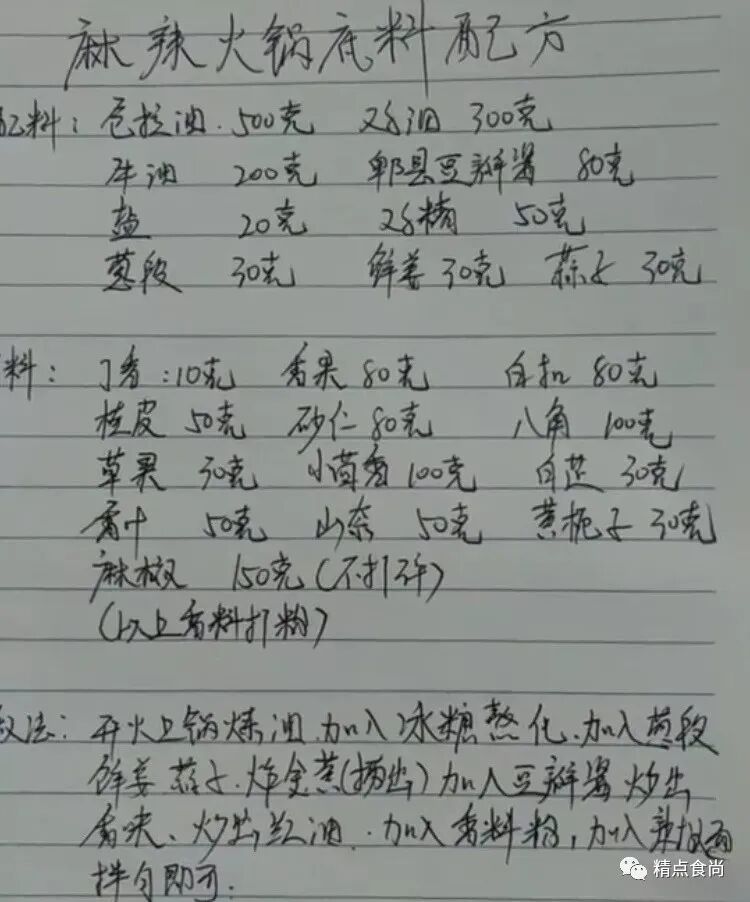 麻辣火锅底料配方
配料: 色拉油 500克 鸡油 300克
牛油 200克 郫县豆瓣酱 80克
盐 20克 鸡精 50克
葱段 30克 鲜姜 30克 蒜子 30克
料: 丁香:10克 香果 80克 白扣 80克
桂皮 50克 砂仁 80克 八角 100克
草果 30克 小茴香 100克 白芷 30克
香叶 50克 山奈 50克 黄栀子 30克
麻椒 150克(不打碎)
(以上香料打粉)
做法: 开火上锅炼油.加入冰糖熬化.加入葱段
鲜姜 蒜子.炸金黄(捞出)加入豆瓣酱 炒出
香味、炒出红油.加入香料粉,加入辣椒面
拌匀即可.
精点食尚